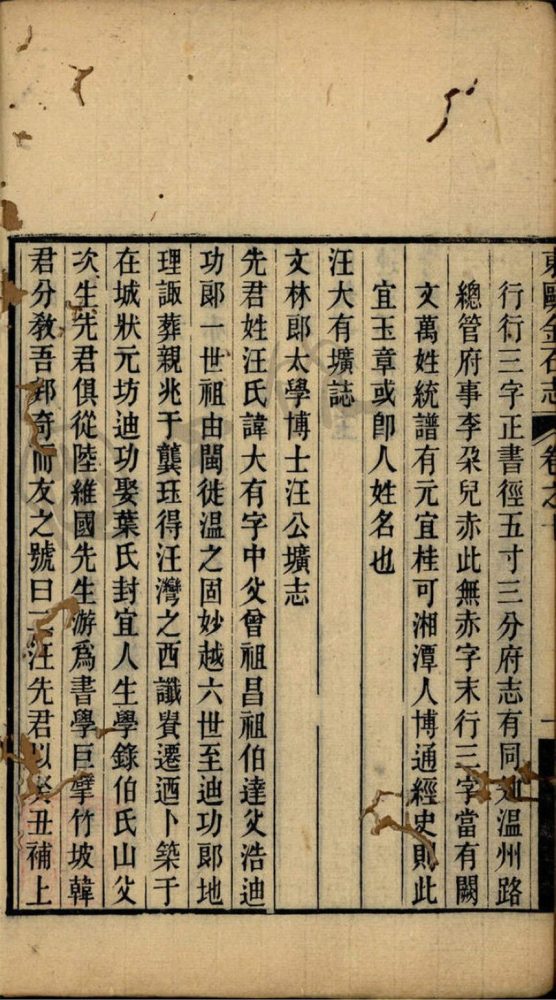 東甌金石志 卷之十
行衍三字正書徑五寸三分府志有同知温州路
總管府事李朶兒赤此無赤字末行三字當有闕
文萬姓統譜有元宜桂可湘潭人博通經史則此
宜玉章或卽人姓名也
汪大有壙誌
文林郎太學博士汪公壙志
先君姓汪氏諱大有字中父曾祖昌祖伯達父浩迪
功郎一世祖由閩徙温之固妙越六世至迪功郎地
理諏葬親兆于龔珏得汪灣之西讖賚遷迺卜築于
在城狀元坊迪功娶葉氏封宜人生學錄伯氏山父
次生先君俱從陸維國先生游爲書學巨擘竹坡韓
君分敎吾邦奇而友之號曰二汪先君以癸丑補上